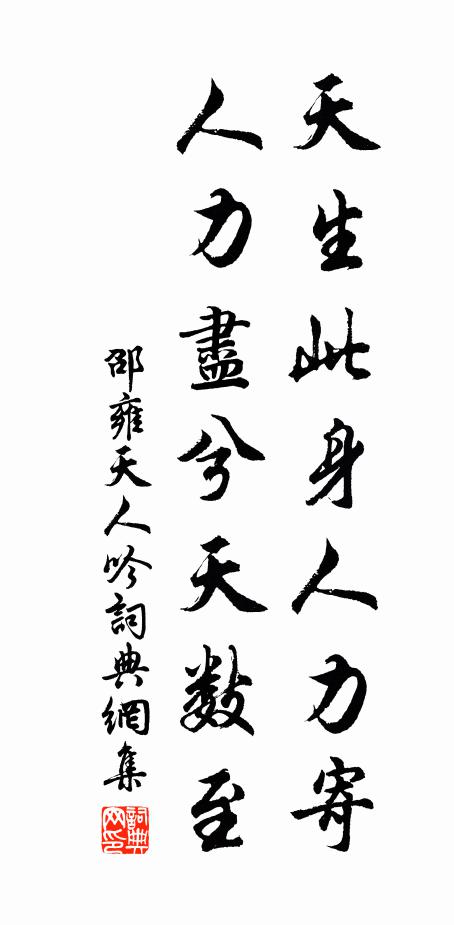 天生此身人力寄
人力盡兮天數至
邵雍天人吟詞典網集
詞典
网印